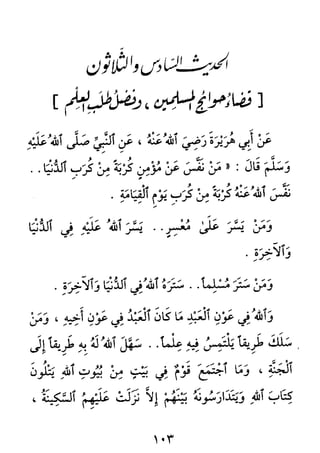 الحديث السّادس والثّلاثون
[ قضاء حوائج المسلمين ، وفضل طلب العلم ]
عَنْ أَبِي هُرَيْرَةَ رَضِيَ اللهُ عَنْهُ ، عَنِ النَّبِيِّ صَلَّى اللهُ عَلَيْهِ
وَسَلَّمَ قَالَ : « مَنْ نَفَّسَ عَنْ مُؤْمِنٍ كُرْبَةً مِنْ كُرَبِ الدُّنْيَا . .
نَفَّسَ اللهُ عَنْهُ كُرْبَةً مِنْ كُرَبِ يَوْمِ الْقِيَامَةِ .
وَمَنْ يَسَّرَ عَلَىٰ مُعْسِرٍ . . يَسَّرَ اللهُ عَلَيْهِ فِي الدُّنْيَا
وَالآخِرَةِ .
وَمَنْ سَتَرَ مُسْلِماً . . سَتَرَهُ اللهُ فِي الدُّنْيَا وَالآخِرَةِ .
وَاللهُ فِي عَوْنِ الْعَبْدِ مَا كَانَ الْعَبْدُ فِي عَوْنِ أَخِيهِ ، وَمَنْ
سَلَكَ طَرِيقاً يَلْتَمِسُ فِيهِ عِلْماً . . سَهَّلَ اللهُ لَهُ بِهِ طَرِيقاً إِلَى
الْجَنَّةِ ، وَمَا اجْتَمَعَ قَوْمٌ فِي بَيْتٍ مِنْ بُيُوتِ اللهِ يَتْلُونَ
كِتَابَ اللهِ وَيَتَدَارَسُونَهُ بَيْنَهُمْ إِلاَّ نَزَلَتْ عَلَيْهِمُ السَّكِينَةُ ،
١٠٣